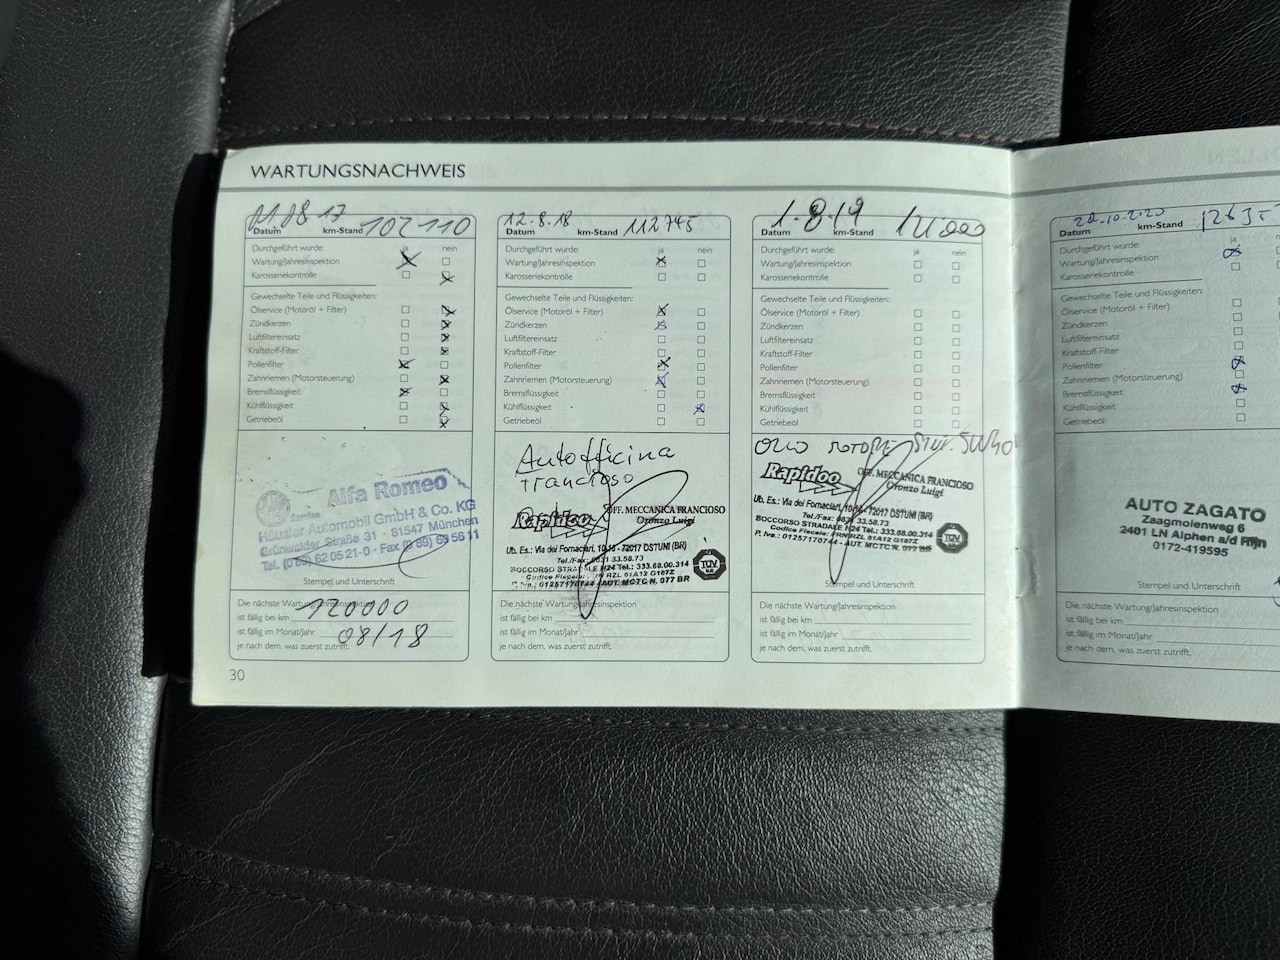 WARTUNGSNACHWEIS
102 110
Datum km-Stand
Durchgeführt wurde: ja nein
Wartung/Jahresinspektion
Karosseriekontrolle
Gewechselte Teile und Flüssigkeiten:
Ölservice (Motoröl + Filter)
Zündkerzen
Luftfiltereinsatz
Kraftstoff-Filter
Pollenfilter
Zahnriemen (Motorsteuerung)
Bremsflüssigkeit
Kühlflüssigkeit
Getriebeöl
Alfa Romeo
Häusler Automobil GmbH & Co. KG
Grünwalder Straße 31 · 81547 München
Tel. (0 89) 62 05 21-0 · Fax (0 89) 69 56 11
Stempel und Unterschrift
Die nächste Wartung/Jahresinspektion
ist fällig bei km 120000
ist fällig im Monat/Jahr 08/18
je nach dem, was zuerst zutrifft.
30
12.8.18 112745
Datum km-Stand
Durchgeführt wurde: ja nein
Wartung/Jahresinspektion
Karosseriekontrolle
Gewechselte Teile und Flüssigkeiten:
Ölservice (Motoröl + Filter)
Zündkerzen
Luftfiltereinsatz
Kraftstoff-Filter
Pollenfilter
Zahnriemen (Motorsteuerung)
Bremsflüssigkeit
Kühlflüssigkeit
Getriebeöl
Autofficina
francioso
Rapidoo OFF. MECCANICA FRANCIOSO
Oronzo Luigi
Ub. Es.: Via dei Fornaciari, 10-16 - 72017 OSTUNI (BR)
Tel./Fax: 0831 33.58.73
SOCCORSO STRADALE H24 Tel.: 333.68.00.314
Codice Fiscale: FRN RZL 61A12 G187Z
P. Iva.: 01257170744 - AUT. MCTC N. 077 BR
TÜV
Die nächste Wartung/Jahresinspektion
ist fällig bei km
ist fällig im Monat/Jahr
je nach dem, was zuerst zutrifft.
1.8.19 121000
Datum km-Stand
Durchgeführt wurde: ja nein
Wartung/Jahresinspektion
Karosseriekontrolle
Gewechselte Teile und Flüssigkeiten:
Ölservice (Motoröl + Filter)
Zündkerzen
Luftfiltereinsatz
Kraftstoff-Filter
Pollenfilter
Zahnriemen (Motorsteuerung)
Bremsflüssigkeit
Kühlflüssigkeit
Getriebeöl
Olio motore 5W40
Rapidoo OFF. MECCANICA FRANCIOSO
Oronzo Luigi
Ub. Es.: Via dei Fornaciari, 10-16 - 72017 OSTUNI (BR)
Tel./Fax: 0831 33.58.73
SOCCORSO STRADALE H24 Tel.: 333.68.00.314
Codice Fiscale: FRN RZL 61A12 G187Z
P. Iva.: 01257170744 - AUT. MCTC N. 077 BR
TÜV
Stempel und Unterschrift
Die nächste Wartung/Jahresinspektion
ist fällig bei km
ist fällig im Monat/Jahr
je nach dem, was zuerst zutrifft.
10-2020
Datum km-Stand
Durchgeführt wurde: ja
Wartung/Jahresinspektion
Karosseriekontrolle
Gewechselte Teile und Flüssigkeiten:
Ölservice (Motoröl + Filter)
Zündkerzen
Luftfiltereinsatz
Kraftstoff-Filter
Pollenfilter
Zahnriemen (Motorsteuerung)
Bremsflüssigkeit
Kühlflüssigkeit
Getriebeöl
AUTO ZAGATO
Zaagmolenweg 6
2401 LN Alphen a/d Rijn
0172-419595
Stempel und Unterschrift
Die nächste Wartung/Jahresinspektion
ist fällig bei km
ist fällig im Monat/Jahr
je nach dem, was zuerst zutrifft.